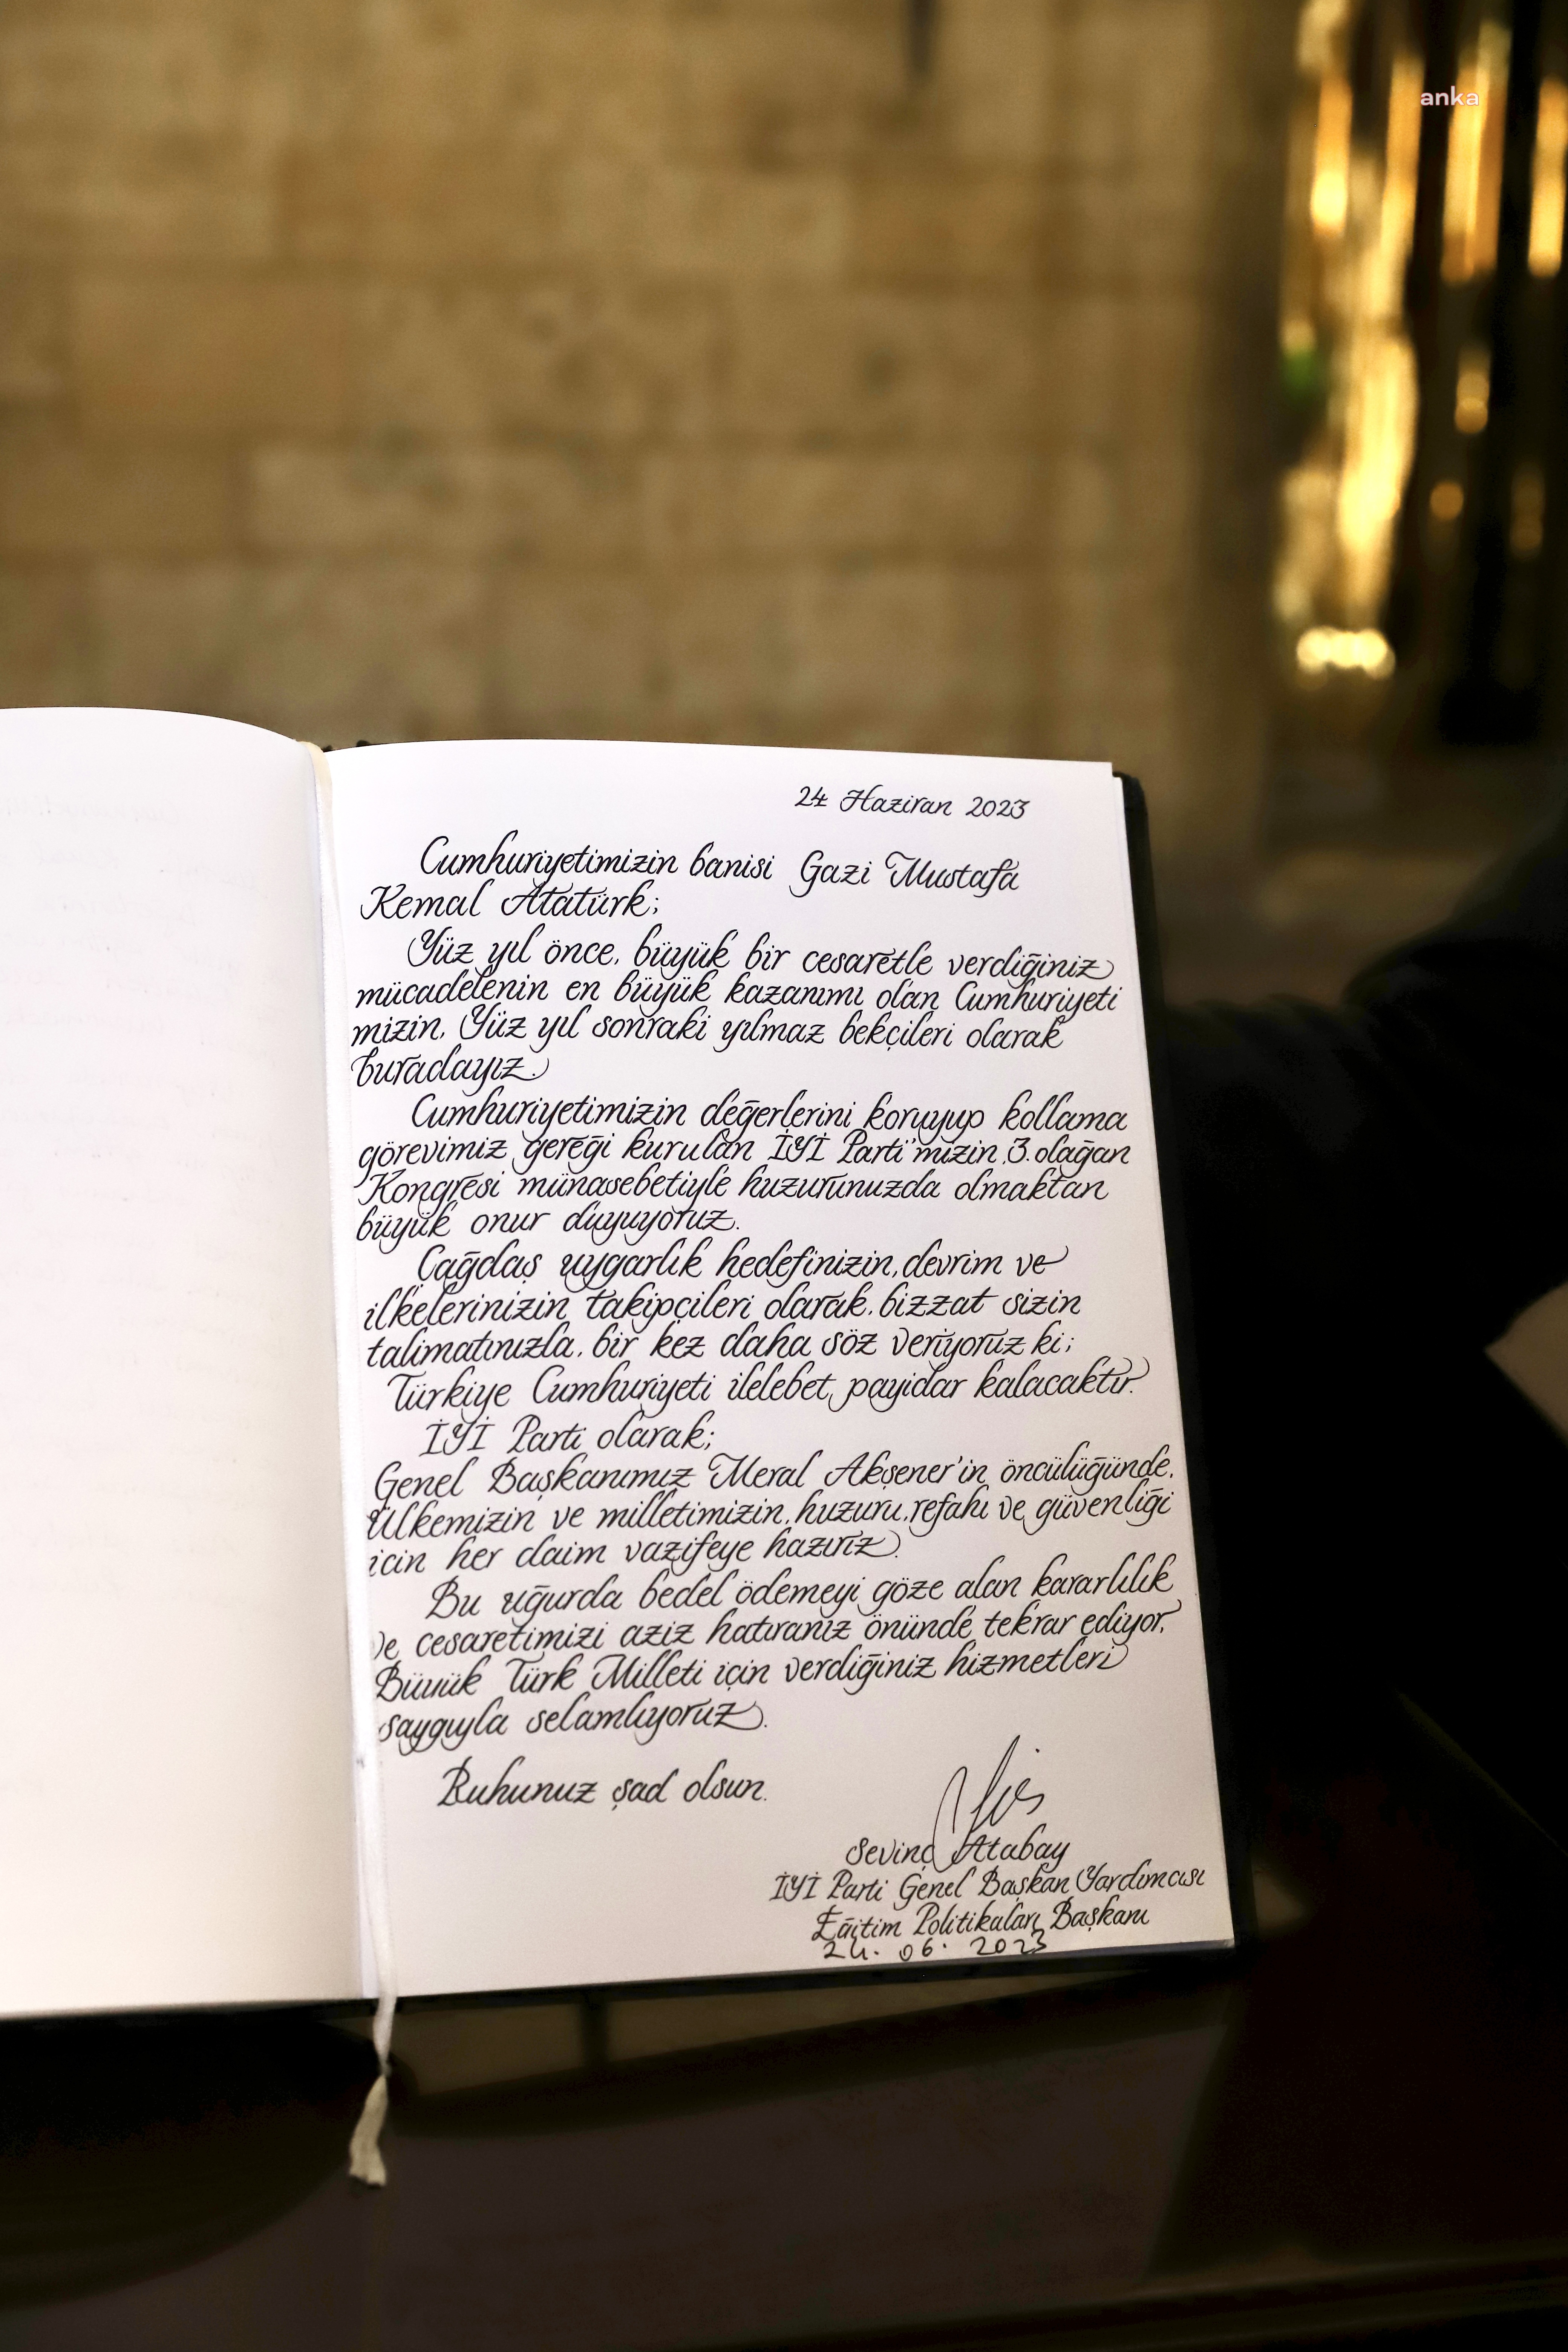 anka
24 Haziran 2023
Cumhuriyetimizin banisi Gazi Mustafa
Kemal Atatürk;
Yüz yıl önce, büyük bir cesaretle verdiğiniz
mücadelenin en büyük kazanımı olan Cumhuriyeti
mizin, Yüz yıl sonraki yılmaz bekçileri olarak
buradayız.
Cumhuriyetimizin değerlerini koruyup kollama
görevimiz gereği kurulan İYİ Parti'mizin 3. olağan
Kongresi münasebetiyle huzurunuzda olmaktan
büyük onur duyuyoruz.
Çağdaş uygarlık hedefinizin, devrim ve
ilkelerinizin takipçileri olarak, bizzat sizin
talimatınızla, bir kez daha söz veriyoruz ki;
Türkiye Cumhuriyeti ilelebet payidar kalacaktır.
İYİ Parti olarak;
Genel Başkanımız Meral Akşener'in öncülüğünde,
Ülkemizin ve milletimizin, huzuru, refahı ve güvenliği
için her daim vazifeye hazırız.
Bu uğurda bedel ödemeyi göze alan kararlılık
ve cesaretimizi aziz hatıranız önünde tekrar ediyor,
Büyük Türk Milleti için verdiğiniz hizmetleri
saygıyla selamlıyoruz.
Ruhunuz şad olsun.
Sevinç Atabay
İYİ Parti Genel Başkan Yardımcısı
Eğitim Politikaları Başkanı
24. 06. 2023